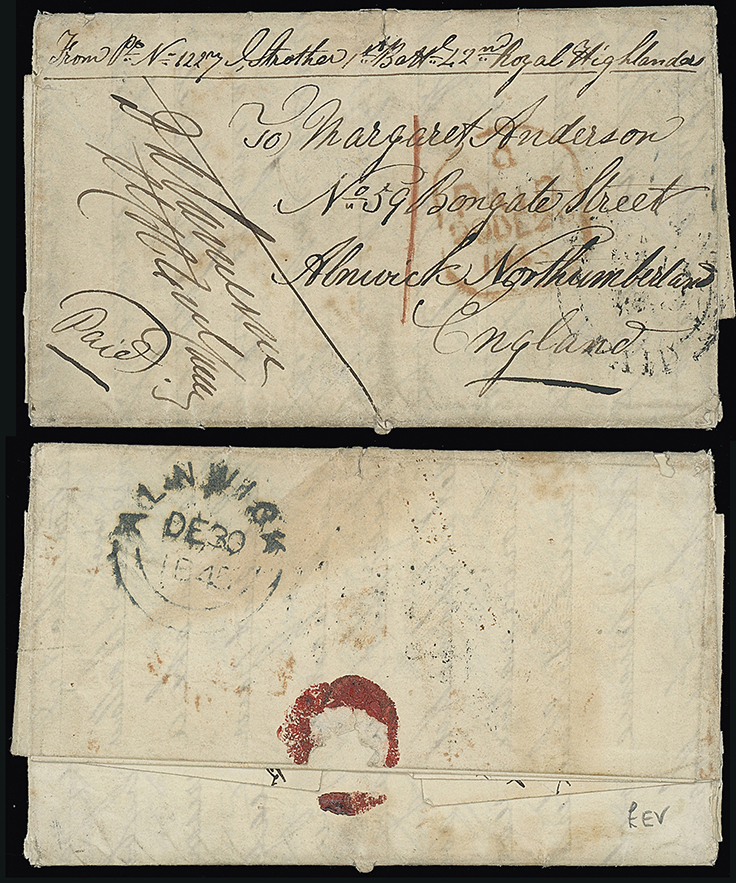 From Pte No 1227 J. Strother 1st Battn 42nd Royal Highlanders
To Margaret Anderson
No 59 Bongate Street
Alnwick Northumberland
England
Paid
PAID
DE
ALNWICK
DE 30
184